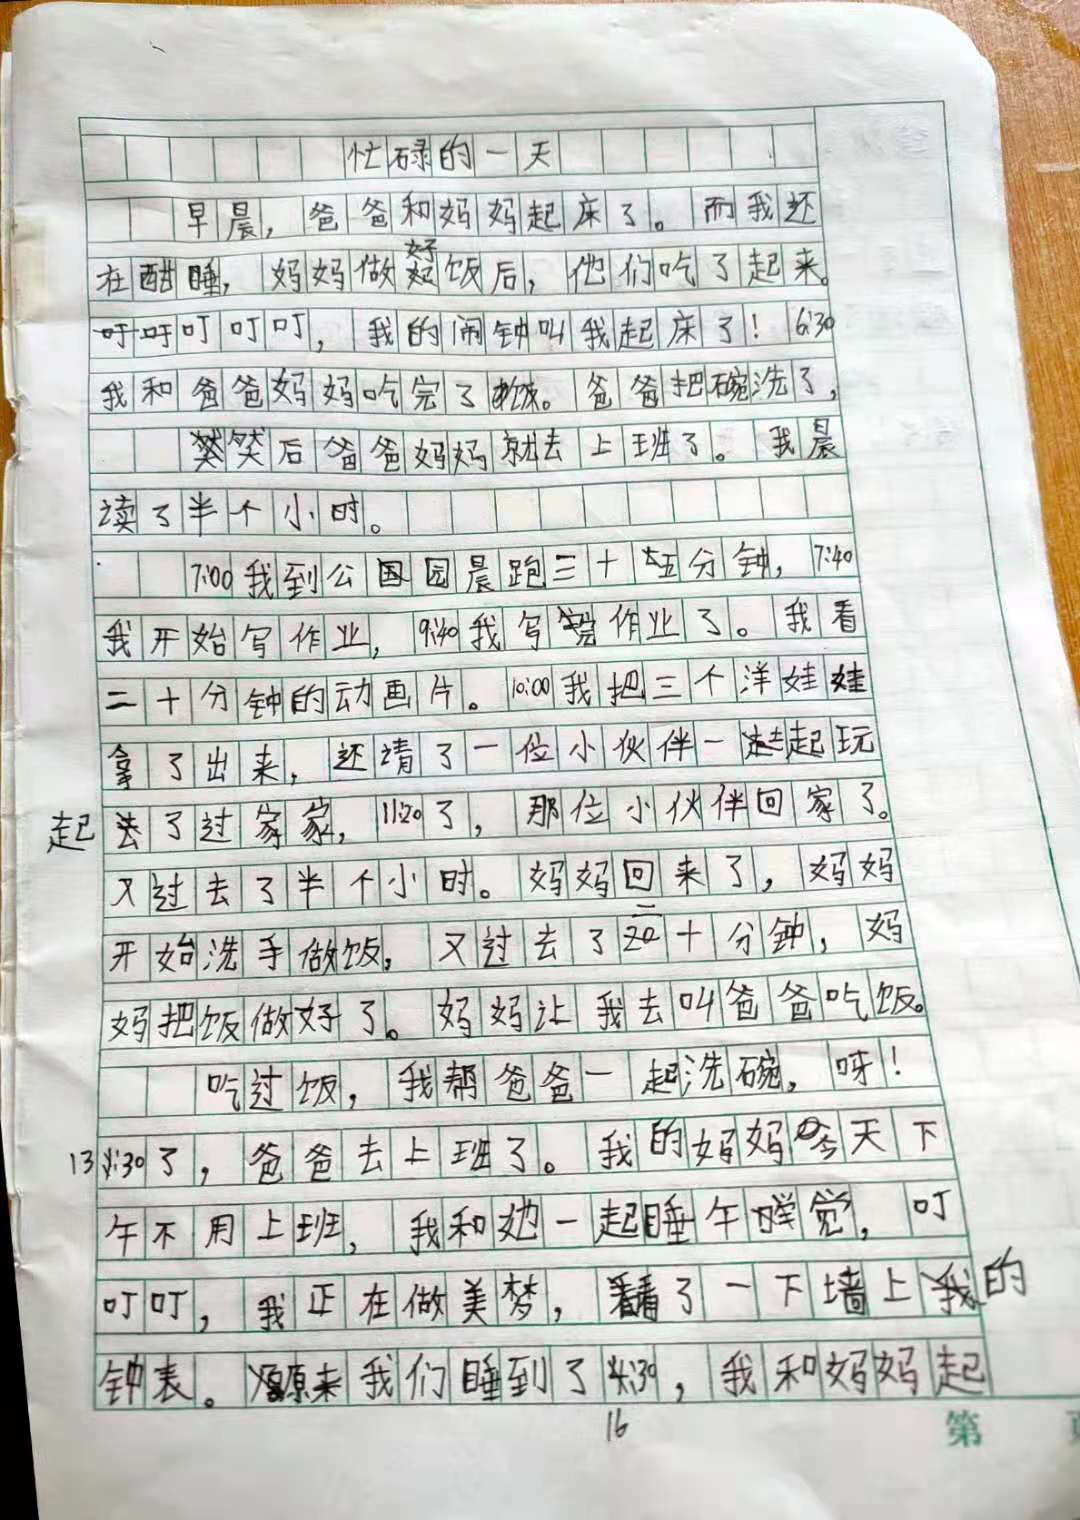 忙碌的一天
早晨，爸爸和妈妈起床了。而我还
在酣睡，妈妈做好饭后，他们吃了起来。
叮叮叮叮叮，我的闹钟叫我起床了！6:30
我和爸爸妈妈吃完了饭。爸爸把碗洗了，
然后爸爸妈妈就去上班了。我晨
读了半个小时。
7:00我到公园晨跑三十五分钟，7:40
我开始写作业，9:40我写完作业了。我看
二十分钟的动画片。10:00我把三个洋娃娃
拿了出来，还请了一位小伙伴一起玩
起了过家家，11:20了，那位小伙伴回家了。
又过去了半个小时。妈妈回来了，妈妈
开始洗手做饭，又过去了二十分钟，妈
妈把饭做好了。妈妈让我去叫爸爸吃饭。
吃过饭，我帮爸爸一起洗碗，呀！
13:30了，爸爸去上班了。我的妈妈今天下
午不用上班，我和她一起睡午觉，叮
叮叮，我正在做美梦，看了一下墙上的
钟表。原来我们睡到了16:30，我和妈妈起
第